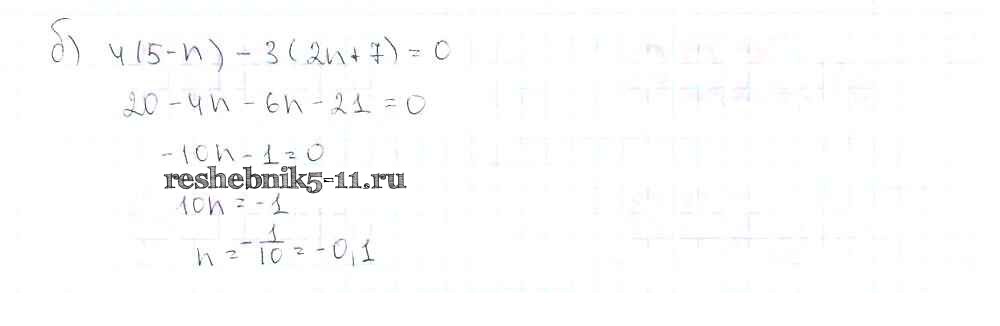 б) 4(5-n) - 3(2n+7) = 0
20 - 4n - 6n - 21 = 0
-10n - 1 = 0
reshebnik5-11.ru
10n = -1
n = -1/10 = -0,1